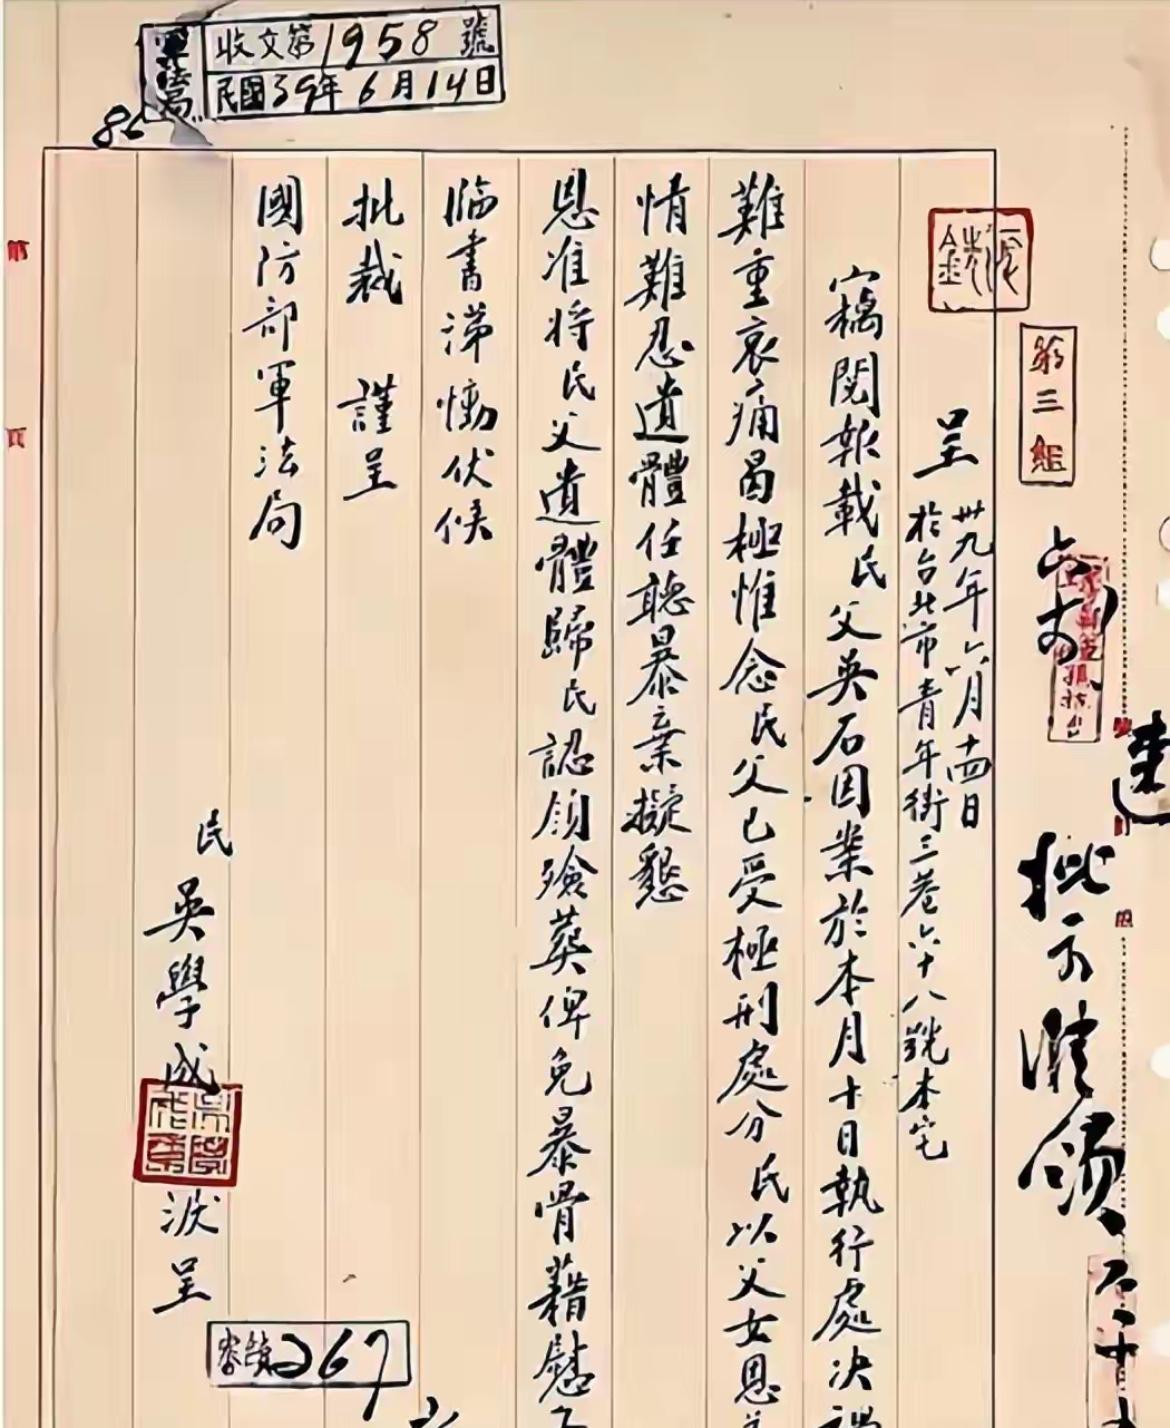 收文第1958號
民國39年6月14日
第三組
批示準領
呈 卅九年六月十四日
於台北市青年街三巷六十八號本宅
竊閱報載民父吳石因案於本月十日執行處決
難重哀痛曷極惟念民父已受極刑處分民以父女恩
情難忍遺體任聽暴棄擬懇
恩准將民父遺體歸民認領殮葬俾免暴骨藉慰
臨書涕慟伏候
批裁 謹呈
國防部軍法局
民吳學成淚呈
267